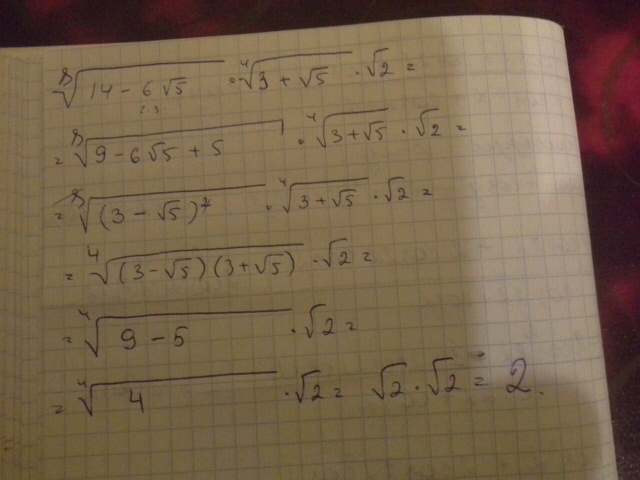 ⁸√(14 − 6√5) · ⁴√(3 + √5) · √2 =
= ⁸√(9 − 6√5 + 5) · ⁴√(3 + √5) · √2 =
= ⁸√((3 − √5)²) · ⁴√(3 + √5) · √2 =
= ⁴√((3 − √5)(3 + √5)) · √2 =
= ⁴√(9 − 5) · √2 =
= ⁴√4 · √2 = √2 · √2 = 2.